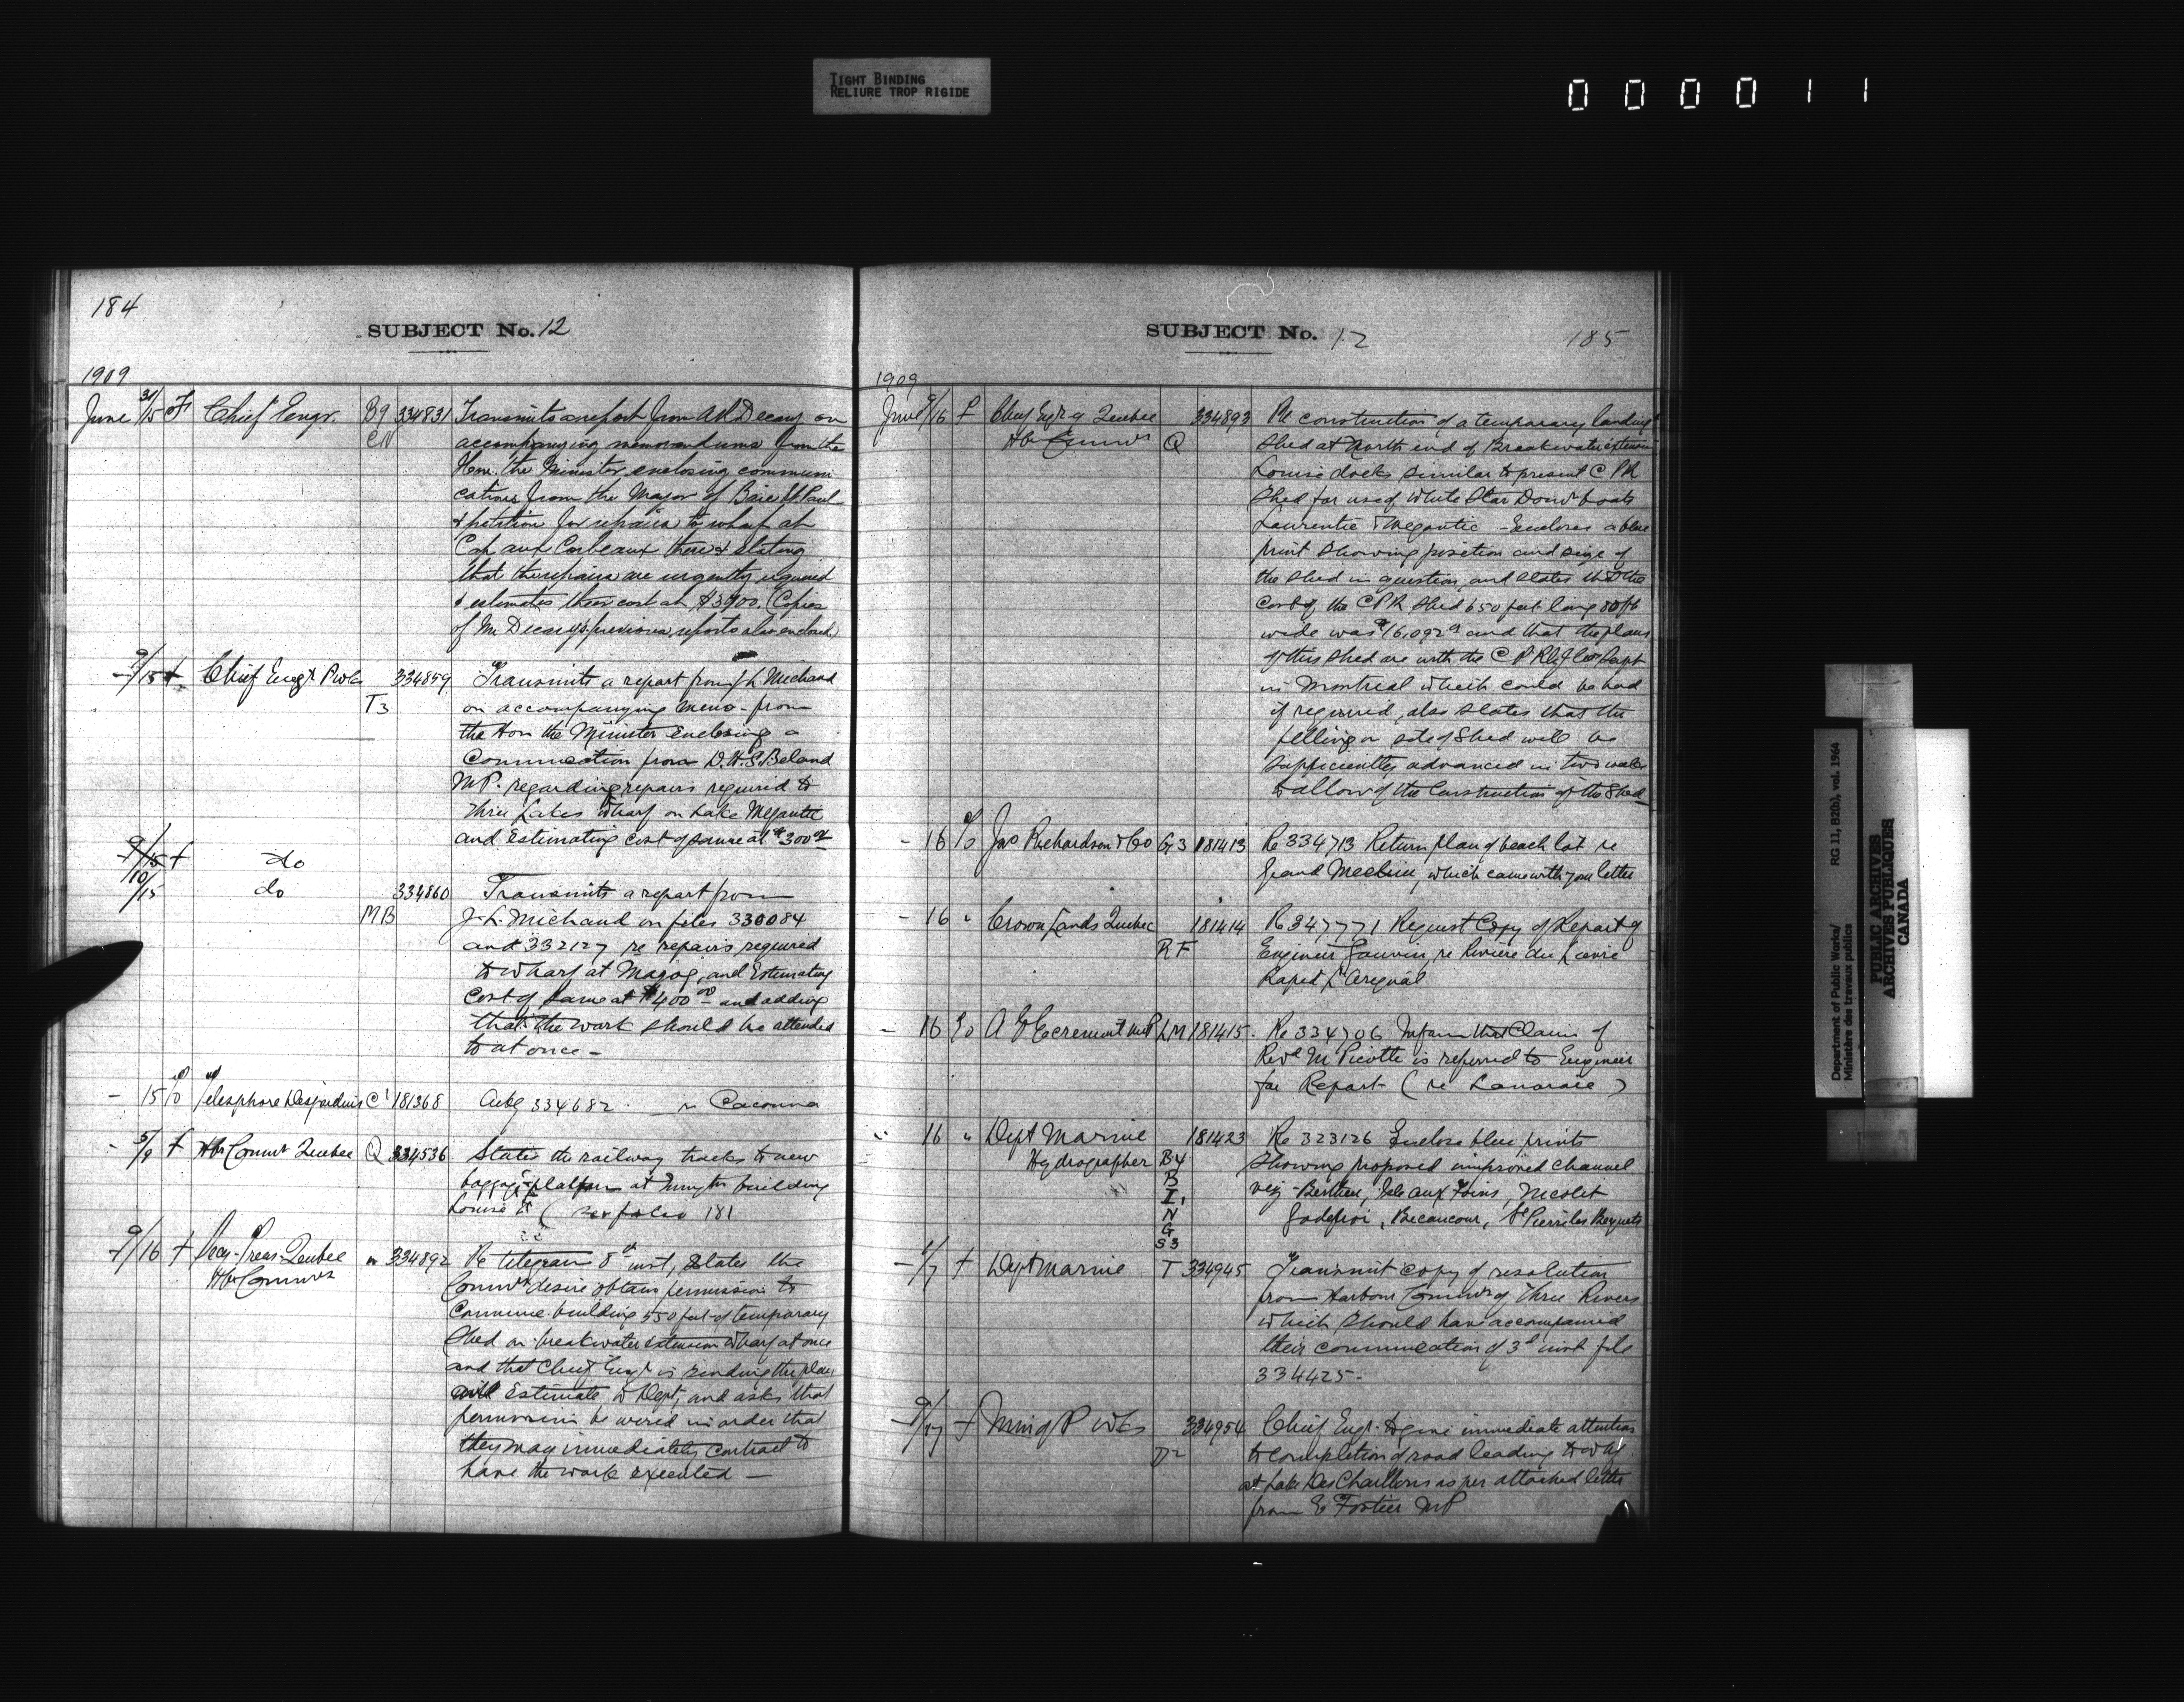 TIGHT BINDING
RELIURE TROP RIGIDE
000011
184
SUBJECT No. 12
1909
June 31/15 F Chief Engr. B9 334831 Transmits a report from A R Decary on
CN accompanying memorandums from the
Hon. the Minister enclosing communi
cations from the Mayor of Baie St. Paul
& petition for repairs to wharf at
Cap aux Corbeaux there & stating
that the repairs are urgently required
& estimates their cost at $3900. (Copies
of Mr Decary's previous reports also enclosed)
9/15 f Chief Engr P Wks 334859 Transmits a report from J L Michaud
T3 on accompanying memo from
the Hon the Minister enclosing a
Communication from D. H. S. Beland
MP. regarding repairs required to
Three Lakes Wharf on Lake Megantic
and Estimating cost of same at $300.00
9/15 f do
10/15 do 334860 Transmits a report from
MB J. L. Michaud on files 330084
and 332127 re repairs required
to Wharf at Magog, and Estimating
Cost of same at $400.00 and adding
that the work should be attended
to at once -
- 15 Telesphore Desjardins C1 181368 Ackg 334682 re Cacouna
- 5/9 f Hbr Commr Quebec Q 334536 States the railway tracks to new
baggage platform at Immgtn building
Louise Et (see folio 181
9/16 f Secy-Treas-Quebec " 334892 Re telegram 8th inst, States the
Hbr Commrs Commrs desire obtain permission to
Commence building 550 feet of temporary
Shed on breakwater extension Wharf at once
and that Chief Engr is sending the plan
and Estimate to Dept, and asks that
permission be wired in order that
they may immediately contract to
have the work executed —
SUBJECT No. 12
185
1909
June 9/16 f Chief Engr Quebec 334893 Re construction of a temporary landing
Hbr Commrs Q Shed at North end of Breakwater extension
Louise docks similar to present C P R
Shed for use of White Star Domn boats
Laurentic & Megantic - Encloses a blue
print showing position and size of
the shed in question, and states that the
Cost of the CPR Shed 650 feet long 80 ft
wide was $16,092 and that the plans
of this shed are with the C P Rly Dept
in Montreal which could be had
if required, also states that the
filling on site of Shed will be
sufficiently advanced in two weeks
to allow of the Construction of the Shed
- 16 Jas Richardson & Co G3 181413 Re 334713 Return plan of beach lot re
Grand Mechin, which came with your letter
- 16 " Crown Lands Quebec 181414 Re 347771 Request Copy of Report of
RF Engineer Gauvin, re Riviere du Lievre
Rapid L'Orignal
- 16 A G Ecrement MP LM 181415. Re 334706 Inform that Claim of
Revd M Picotte is referred to Engineer
for Report (re Lanoraie)
16 " Dept Marine 181423 Re 323126 Enclose blue prints
Hydrographer B4 Showing proposed improved channel
B viz - Berthier, Isle aux Foins, Nicolet
I1
N Godefroi, Becancour, St Pierre les Becquets
G
S3
- /7 f Dept Marine T 334945 Transmit copy of resolution
from Harbour Commrs of Three Rivers
which should have accompanied
their communication of 3d inst file
334425 -
9/17 f Min of P Wks 334954 Chief Engr. to give immediate attention
D2 to completion of road leading to whf
at Lake Des Chaillons as per attached letter
from E Fortier MP
Department of Public Works/ RG 11, B2(b), vol. 1964
Ministère des travaux publics
PUBLIC ARCHIVES
ARCHIVES PUBLIQUES
CANADA